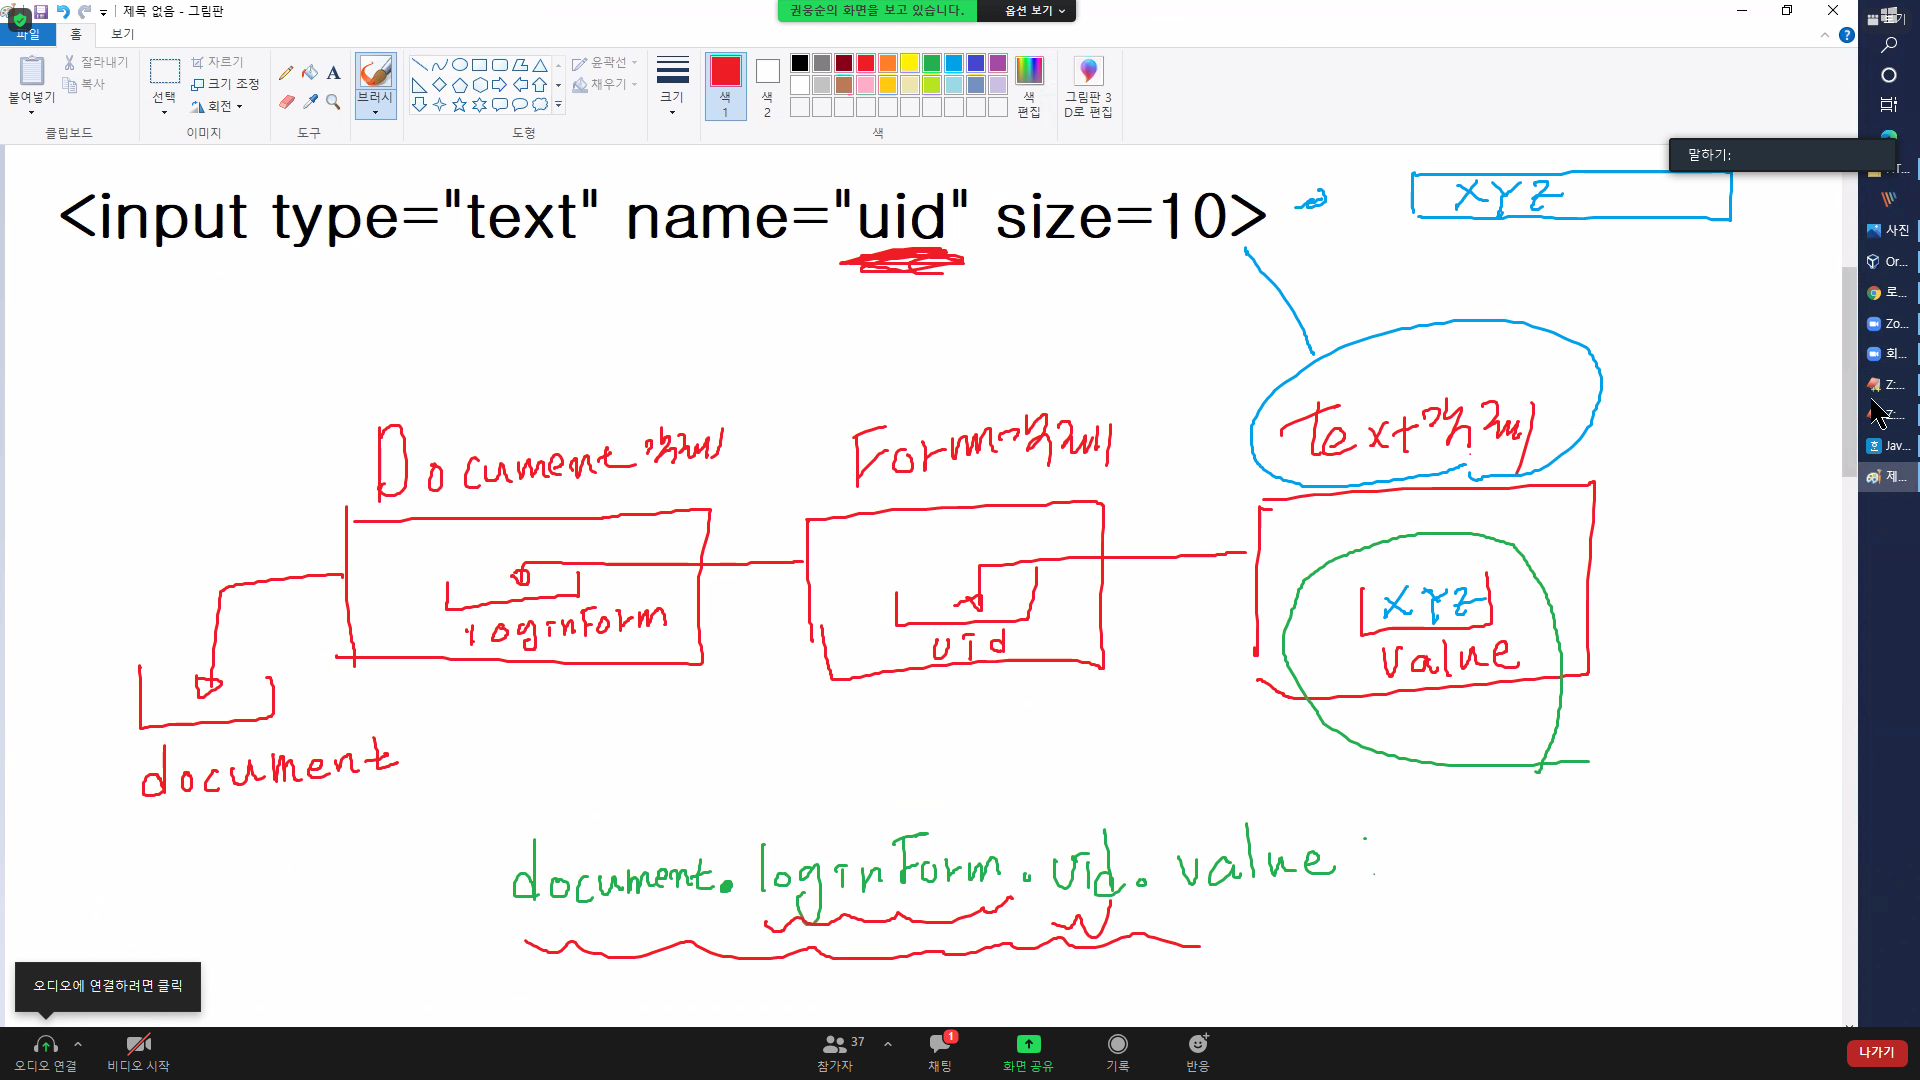 제목 없음 - 그림판
권웅순의 화면을 보고 있습니다.
옵션 보기
파일
홈
보기
붙여넣기
잘라내기
복사
클립보드
선택
자르기
크기 조정
회전
이미지
도구
브러시
윤곽선
채우기
도형
크기
색
1
색
2
색
편집
그림판 3
D로 편집
색
말하기:
<input type="text" name="uid" size=10>
XYZ
Document객체
Form객체
Text객체
loginForm
uid
XYZ
value
document
document.loginForm.uid.value
사진
Or...
로...
Zo...
회...
Z:...
Z:...
Jav...
제...
오디오에 연결하려면 클릭
오디오 연결
비디오 시작
37
참가자
1
채팅
화면 공유
기록
반응
나가기